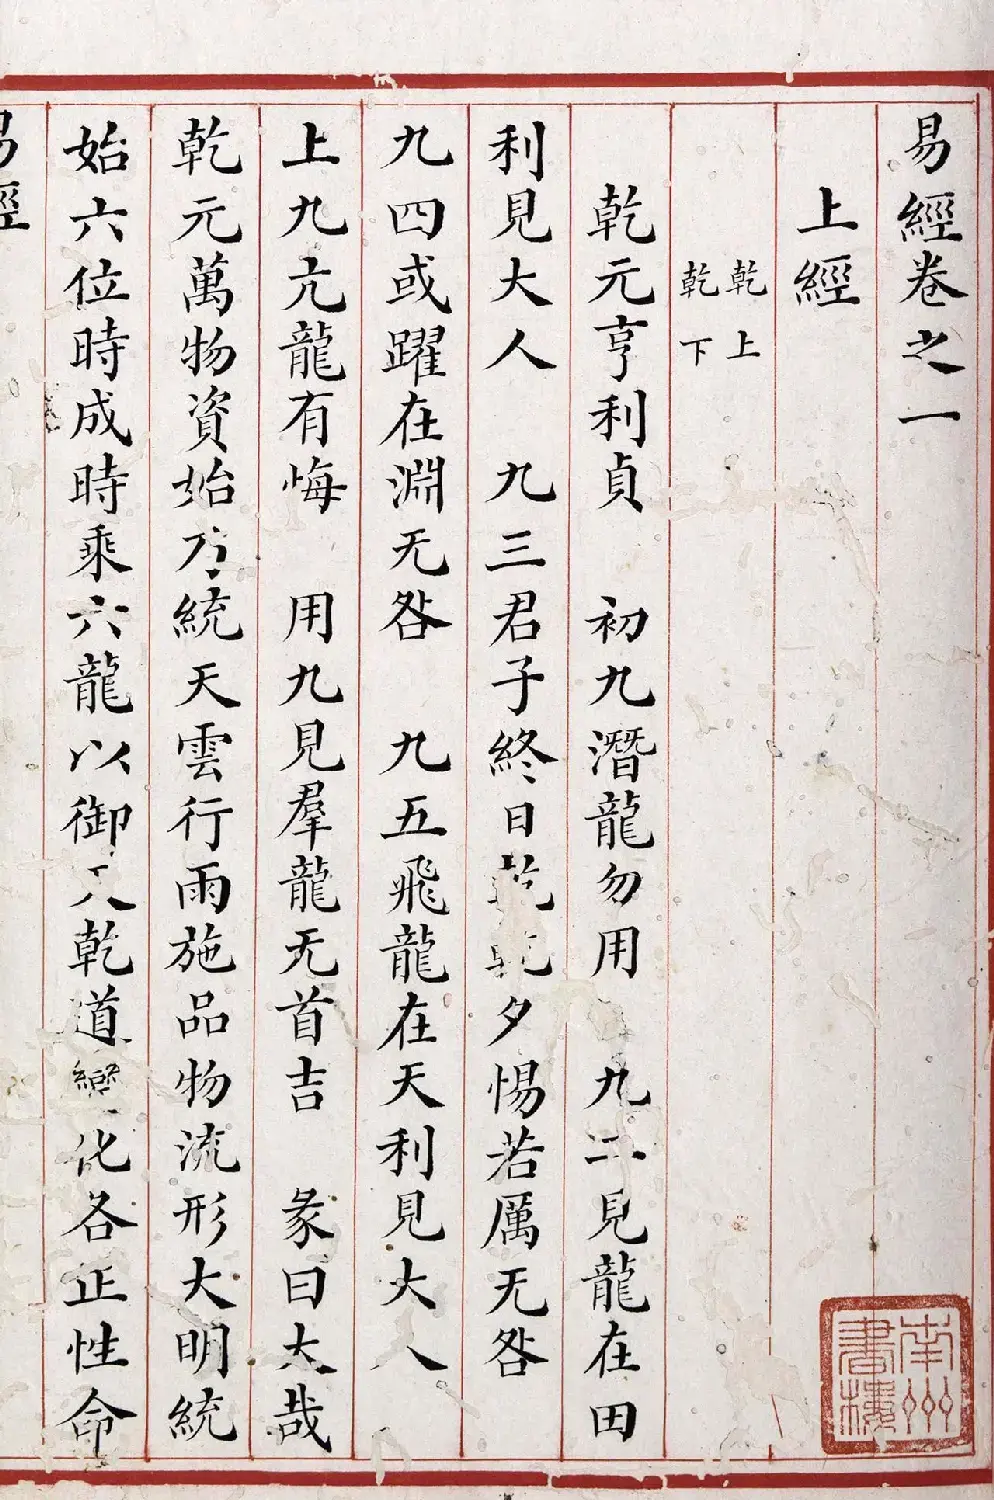 易經卷之一
上經
乾上
乾下
乾元亨利貞　初九潛龍勿用　九二見龍在田
利見大人　九三君子終日乾乾夕惕若厲无咎
九四或躍在淵无咎　九五飛龍在天利見大人
上九亢龍有悔　用九見羣龍无首吉　彖曰大哉
乾元萬物資始乃統天雲行雨施品物流形大明統
始六位時成時乘六龍以御天乾道變化各正性命
易經
南州書樓